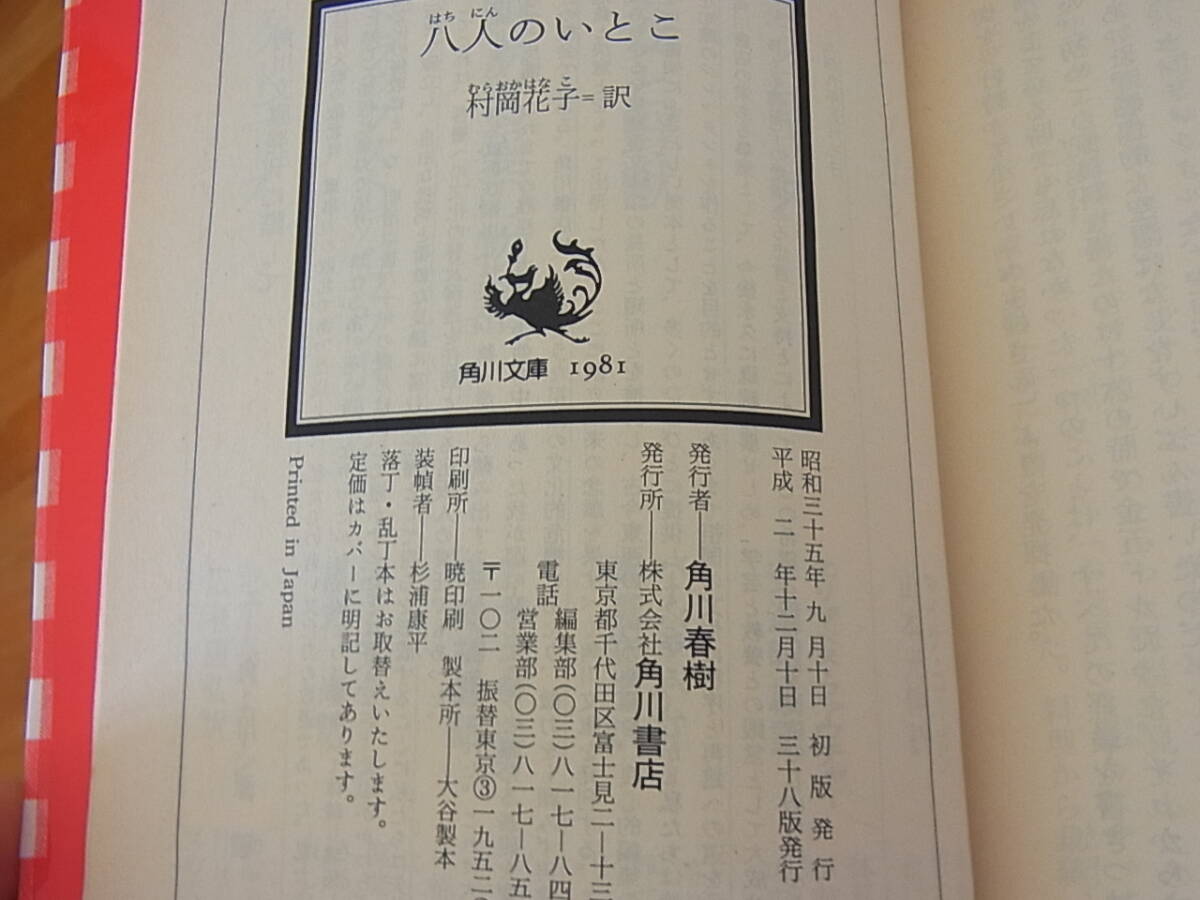 八人のいとこ
はちにん
村岡花子=訳
むらおかはなこ
角川文庫 1981
昭和三十五年 九 月十日 初 版 発 行
平成 二 年十二月十日 三十八版発行
発行者──角川春樹
発行所──株式会社角川書店
東京都千代田区富士見二―十三
電話
編集部(〇三)八一七―八四
営業部(〇三)八一七―八五
〒一〇二 振替東京③一九五二〇
印刷所──暁印刷 製本所──大谷製本
装幀者──杉浦康平
落丁・乱丁本はお取替えいたします。
定価はカバーに明記してあります。
Printed in Japan